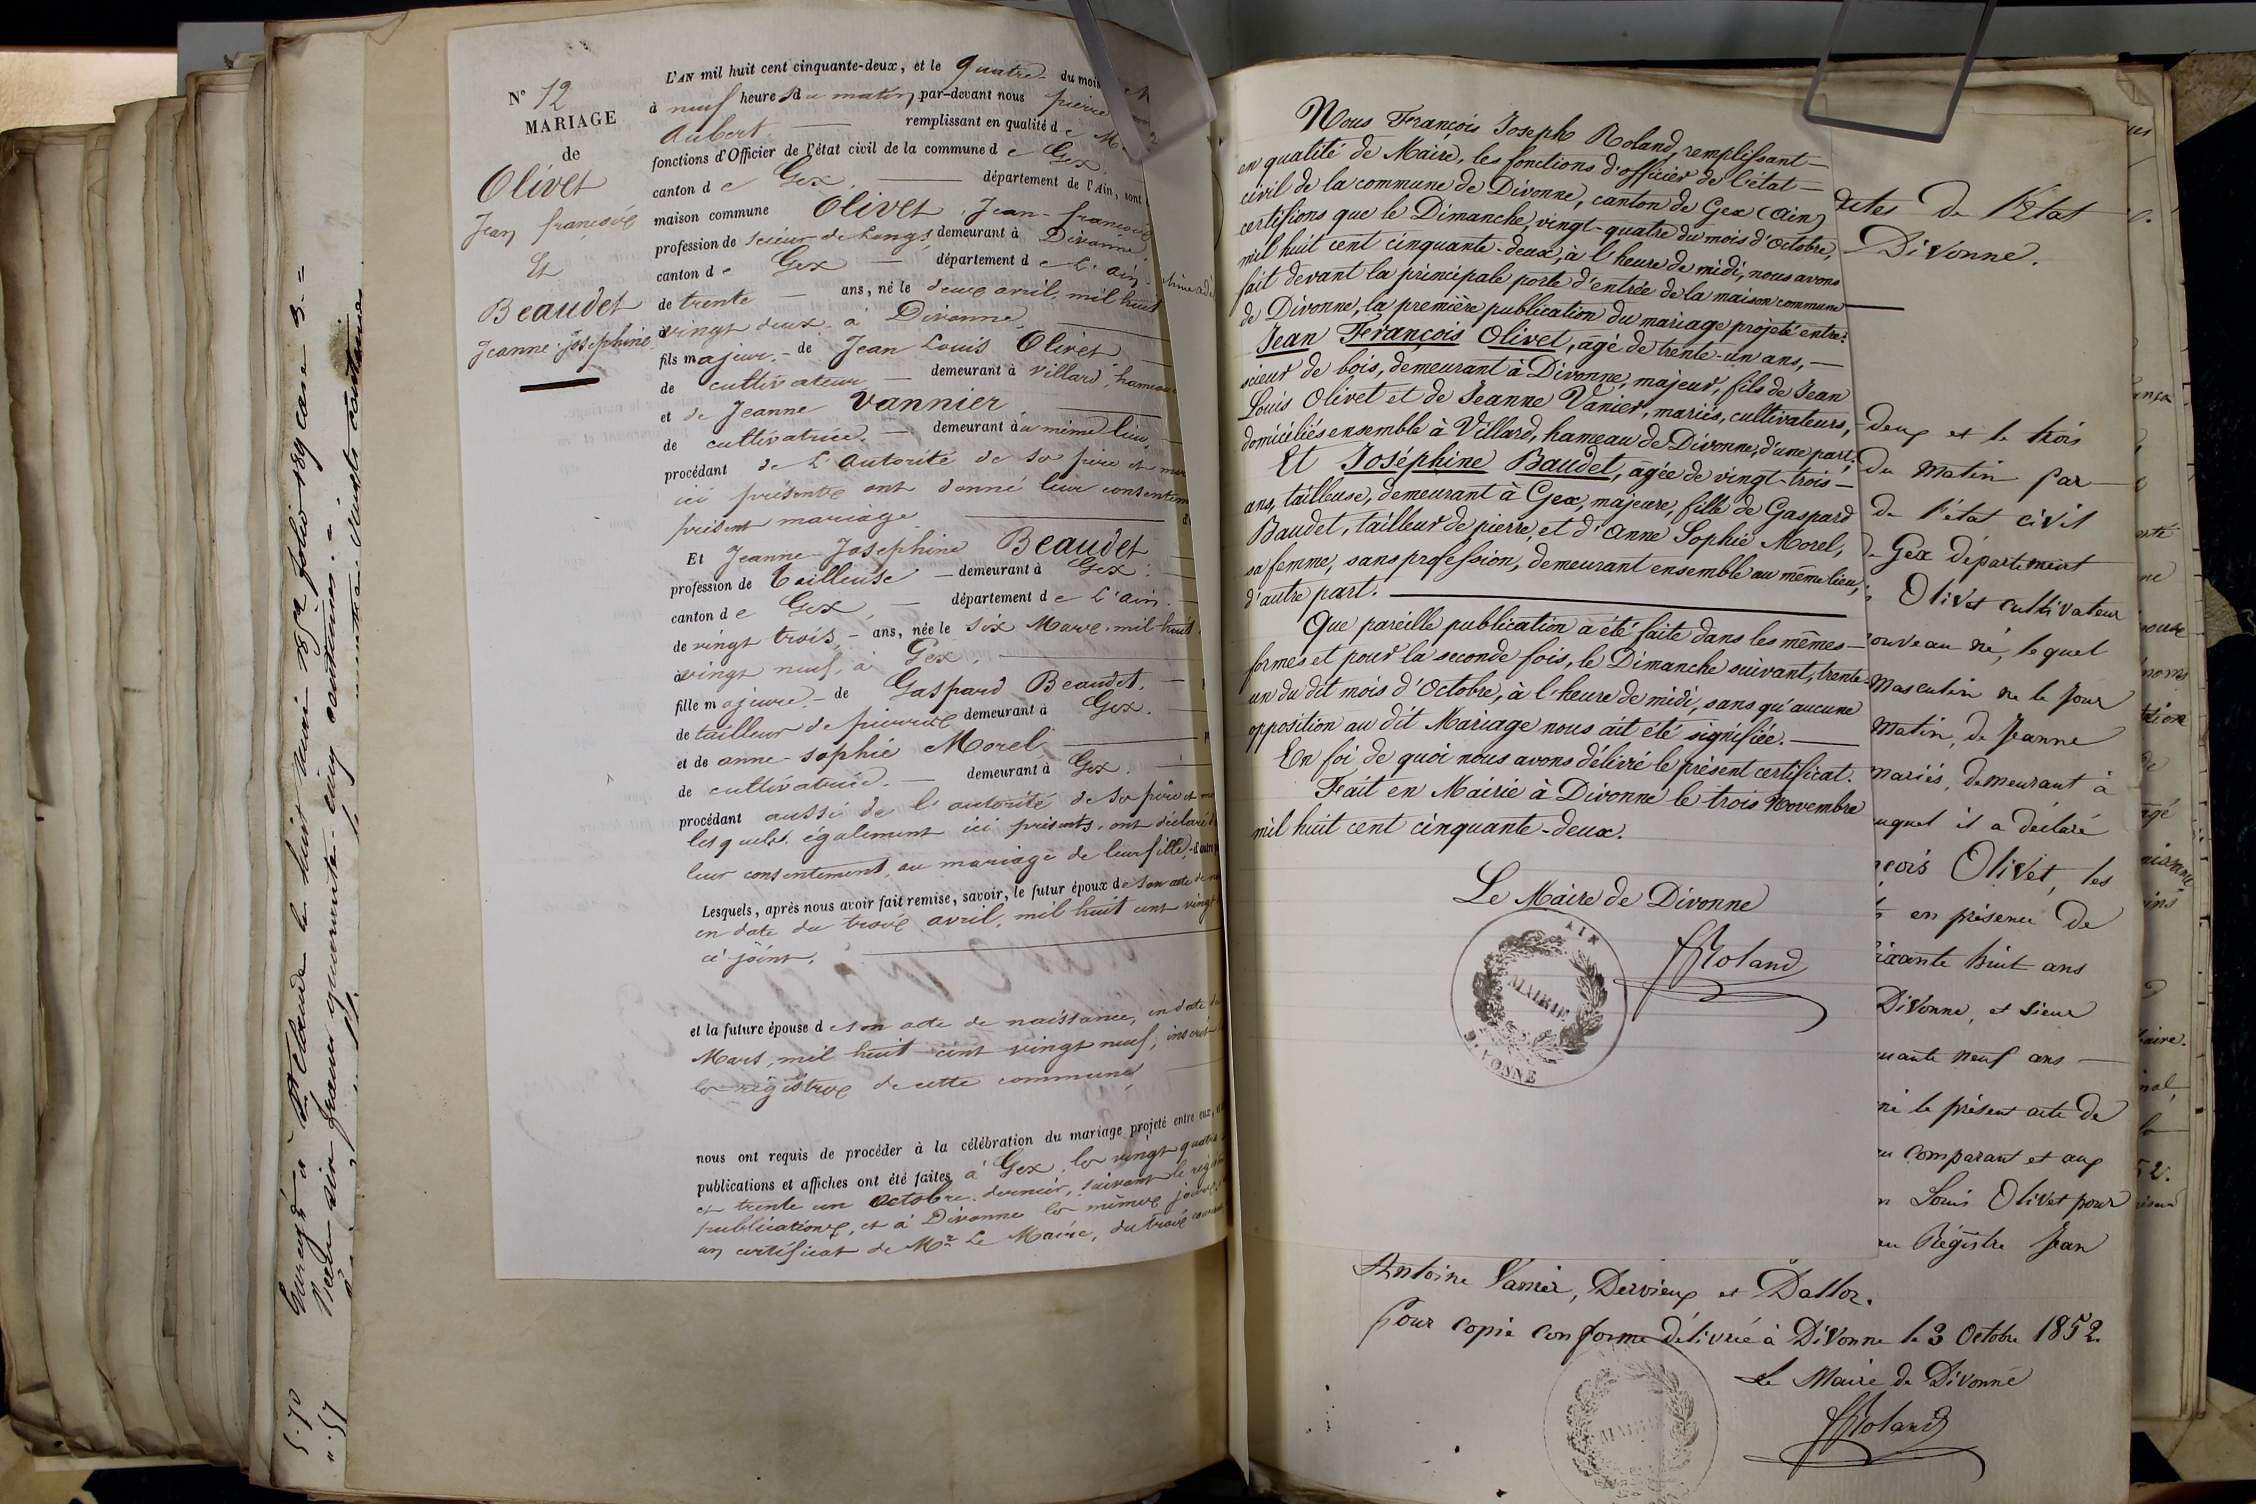 N° 12
MARIAGE
de
Olivet
Jean françois
Et
Beaudet
Jeanne Joséphine
L'AN mil huit cent cinquante-deux, et le quatre du mois
à neuf heures du matin par-devant nous pierre
Aubert remplissant en qualité de
fonctions d'Officier de l'état civil de la commune de Gex
canton de Gex département de l'Ain, sont
maison commune Olivet, Jean-françois
profession de scieur de Longs, demeurant à Divonne
canton de Gex département de L'ain
de trente ans, né le deux avril, mil huit
vingt deux à Divonne
fils majeur de Jean Louis Olivet
de cultivateur demeurant à Villard, hameau
et de Jeanne Vannier
de cultivatrice. demeurant au même lieu,
procédant de L'autorité de ses père et mère
ici présents ont donné leur consentem
présent mariage
Et Jeanne Josephine Beaudet
profession de Tailleuse demeurant à Gex.
canton de Gex, département de L'ain.
de vingt trois ans, née le six Mars, mil huit
vingt neuf, à Gex.
fille majeure de Gaspard Beaudet.
de tailleur de pierres demeurant à Gex.
et de anne-sophie Morel
de cultivatrice. demeurant à Gex.
procédant aussi de l'autorité de ses père et
lesquels également ici présents, ont déclaré
leur consentement au mariage de leur fille,
Lesquels, après nous avoir fait remise, savoir, le futur époux de son acte de
en date du trois avril, mil huit cent vingt
ci-joint.
et la future épouse de son acte de naissance, en date
Mars, mil huit cent vingt neuf, inscrit
les registres de cette commune
nous ont requis de procéder à la célébration du mariage projeté entre eux,
publications et affiches ont été faites à Gex les vingt quatre
et trente un octobre dernier, suivant le
publications, et à Divonne les mêmes jours,
un certificat de Mr Le Maire, du trois courant
Nous François Joseph Roland, remplissant
en qualité de Maire, les fonctions d'officier de l'état
civil de la commune de Divonne, canton de Gex (Ain)
certifions que le Dimanche, vingt-quatre du mois d'Octobre,
mil huit cent cinquante-deux, à l'heure de midi, nous avons
fait devant la principale porte d'entrée de la maison commune
de Divonne, la première publication du mariage projeté entre:
Jean François Olivet, agé de trente-un ans,
scieur de bois, demeurant à Divonne, majeur, fils de Jean
Louis Olivet et de Jeanne Vanier, mariés, cultivateurs,
domiciliés ensemble à Villard, hameau de Divonne, d'une part;
Et Joséphine Baudet, agée de vingt-trois
ans, tailleuse, demeurant à Gex, majeure, fille de Gaspard
Baudet, tailleur de pierre, et d'Anne Sophie Morel,
sa femme, sans profession, demeurant ensemble au même lieu,
d'autre part.
Que pareille publication a été faite dans les mêmes
formes et pour la seconde fois, le Dimanche suivant, trente-
un du dit mois d'Octobre, à l'heure de midi, sans qu'aucune
opposition au dit Mariage nous ait été signifiée.
En foi de quoi nous avons délivré le présent certificat.
Fait en Mairie à Divonne le trois Novembre
mil huit cent cinquante-deux.
Le Maire de Divonne
AIN
MAIRIE
DIVONNE
Roland
de l'Etat
Divonne.
deux et le trois
du matin par
de l'état civil
Gex département
Olivet cultivateur
nouveau né, lequel
Masculin né le jour
Matin, de Jeanne
mariés, demeurant à
auquel il a déclaré
Olivet, les
en présence de
huit ans
Divonne, et sieur
neuf ans
le présent acte de
comparant et aux
Louis Olivet pour
au Régistre Jean
Antoine Vanier, Dervieux et Dalloz.
Pour copie conforme délivrée à Divonne le 3 Octobre 1852.
Le Maire de Divonne
MAIRIE
Roland